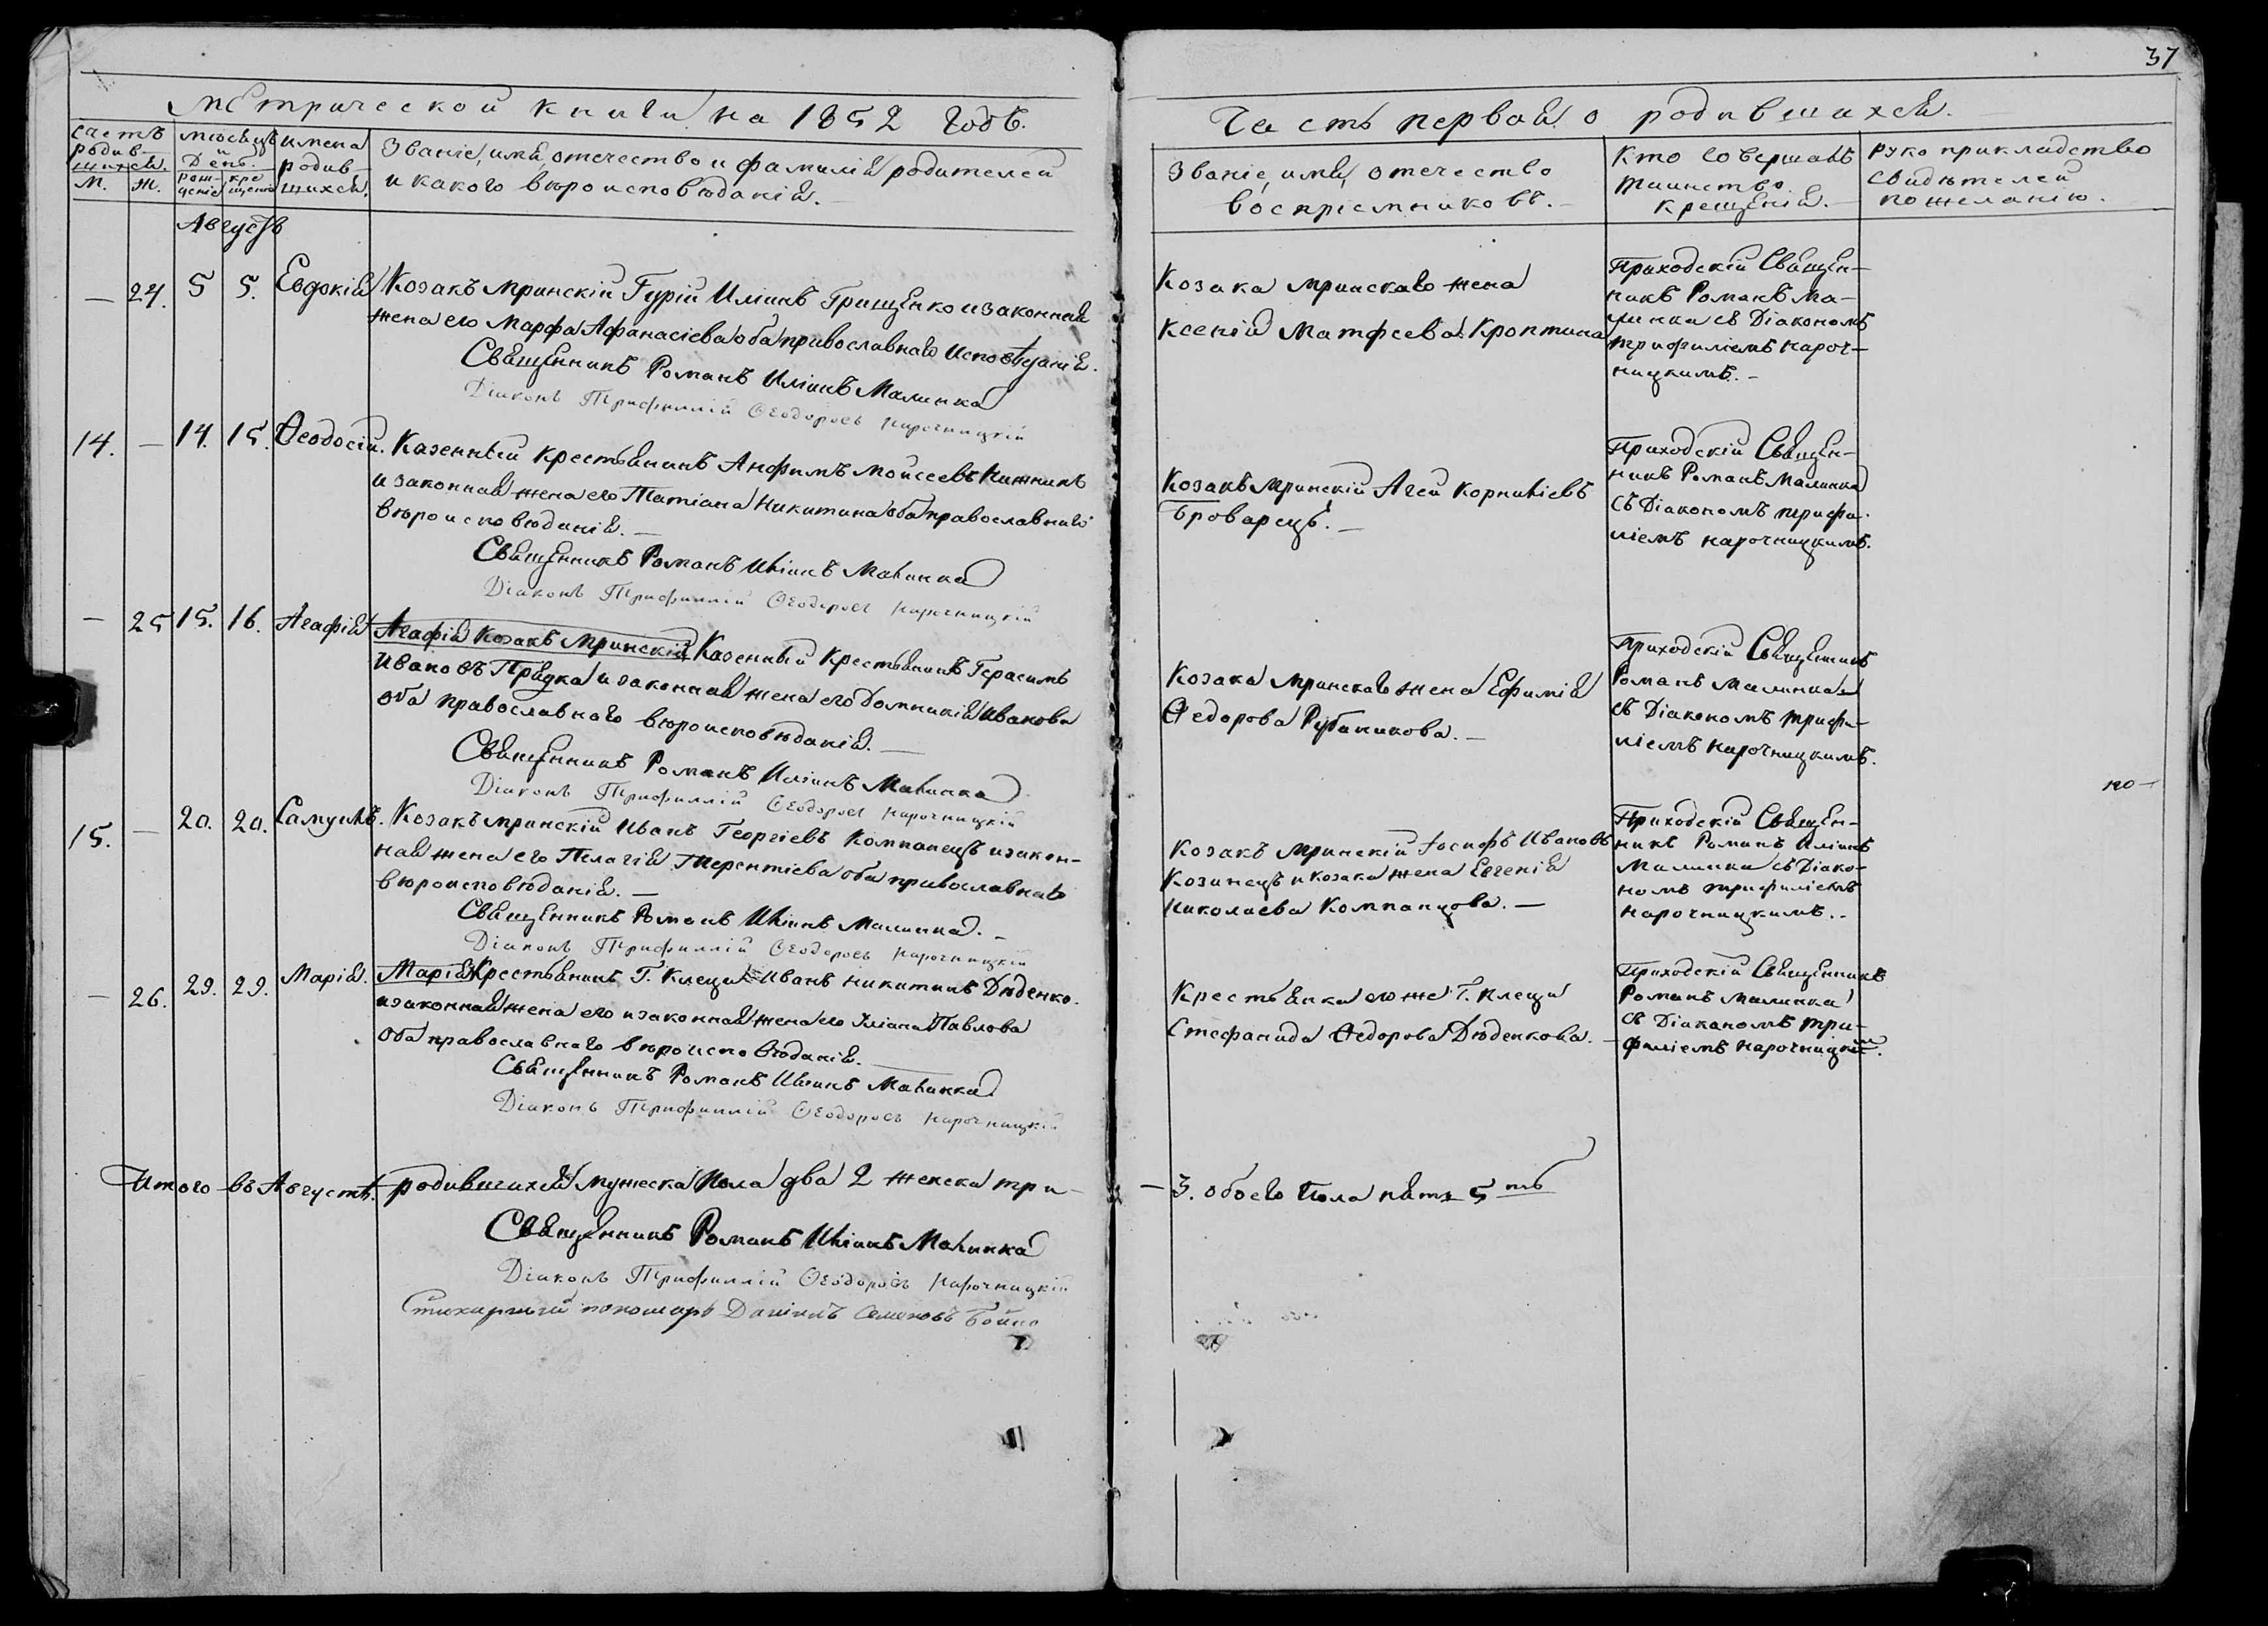 37
Метрической книги на 1852 годъ.
Часть первая о родившихся.
Счетъ родив-шихся.
М. Ж.
Мѣсяцъ и день.
рож-деніе
кре-щеніе
Имена родив-шихся.
Званіе, имя, отечество и фамилія родителей
и какого вѣроисповѣданія.
Званіе, имя, отечество
воспріемниковъ.
Кто совершалъ
таинство
крещенія.
Рукоприкладство
свидѣтелей
по желанію.
Августъ
— 24. 5 5. Евдокія
Козакъ Мринскій Гурій Иліинъ Грищенко и законная
жена его Марфа Афанасіева оба православнаго исповѣданія.
Священникъ Романъ Иліинъ Малинка
Діаконъ Трифиллій Ѳеодоровъ Нарочницкій
Козака Мринскаго жена
Ксенія Матфеева Кроптина
Приходскій Священ-
никъ Романъ Ма-
линка съ Діакономъ
Трифиліемъ Нароч-
ницкимъ. —
14. — 14. 15. Ѳеодосій.
Казенный крестьянинъ Анфимъ Мойсеевъ Книжникъ
и законная жена его Татіана Никитина оба православнаго
вѣроисповѣданія. —
Священникъ Романъ Иліинъ Малинка
Діаконъ Трифиллій Ѳеодоровъ Нарочницкій
Козакъ Мринскій Агей Корниліевъ
Броварецъ. —
Приходскій Священ-
никъ Романъ Малинка
съ Діакономъ Трифи-
ліемъ Нарочницкимъ.
— 25 15. 16. Агафія
Агафія Козакъ Мринскій Казенный Крестьянинъ Герасимъ
Ивановъ Прядка и законная жена его Домникія Иванова
оба православнаго вѣроисповѣданія. —
Священникъ Романъ Иліинъ Малинка
Діаконъ Трифиллій Ѳеодоровъ Нарочницкій
Козака Мринскаго жена Ефимія
Ѳедорова Рубаникова. —
Приходскій Священникъ
Романъ Малинка
съ Діакономъ Трифи-
ліемъ Нарочницкимъ.
но —
15. — 20. 20. Самуилъ.
Козакъ Мринскій Иванъ Георгіевъ Компанецъ и закон-
ная жена его Пелагія Терентіева оба православнаго
вѣроисповѣданія. —
Священникъ Романъ Иліинъ Малинка. —
Діаконъ Трифиллій Ѳеодоровъ Нарочницкій
Козакъ Мринскій Іосифъ Ивановъ
Козинецъ и козака жена Евгенія
Николаева Компанцова. —
Приходскій Священ-
никъ Романъ Иліинъ
Малинка съ Діако-
номъ Трифиліемъ
Нарочницкимъ. —
— 26. 29. 29. Марія.
Марія Крестьянинъ Г. Клеци Иванъ Никитинъ Дяденко.
и законная жена его и законная жена его Іліана Павлова
оба православнаго вѣроисповѣданія.
Священникъ Романъ Иліинъ Малинка
Діаконъ Трифиллій Ѳеодоровъ Нарочницкій
Крестьянка его же Г. Клеци
Стефанида Ѳедорова Дяденкова. —
Приходскій Священникъ
Романъ Малинка
съ Діакономъ Три-
филіемъ Нарочницкимъ.
Итого въ Августѣ. родившихся мужеска пола два 2 женска три —
— 3. обоего пола пять 5 ть
Священникъ Романъ Иліинъ Малинка
Діаконъ Трифиллій Ѳеодоровъ Нарочницкій
Стихарный пономарь Даніилъ Семеновъ Бойко